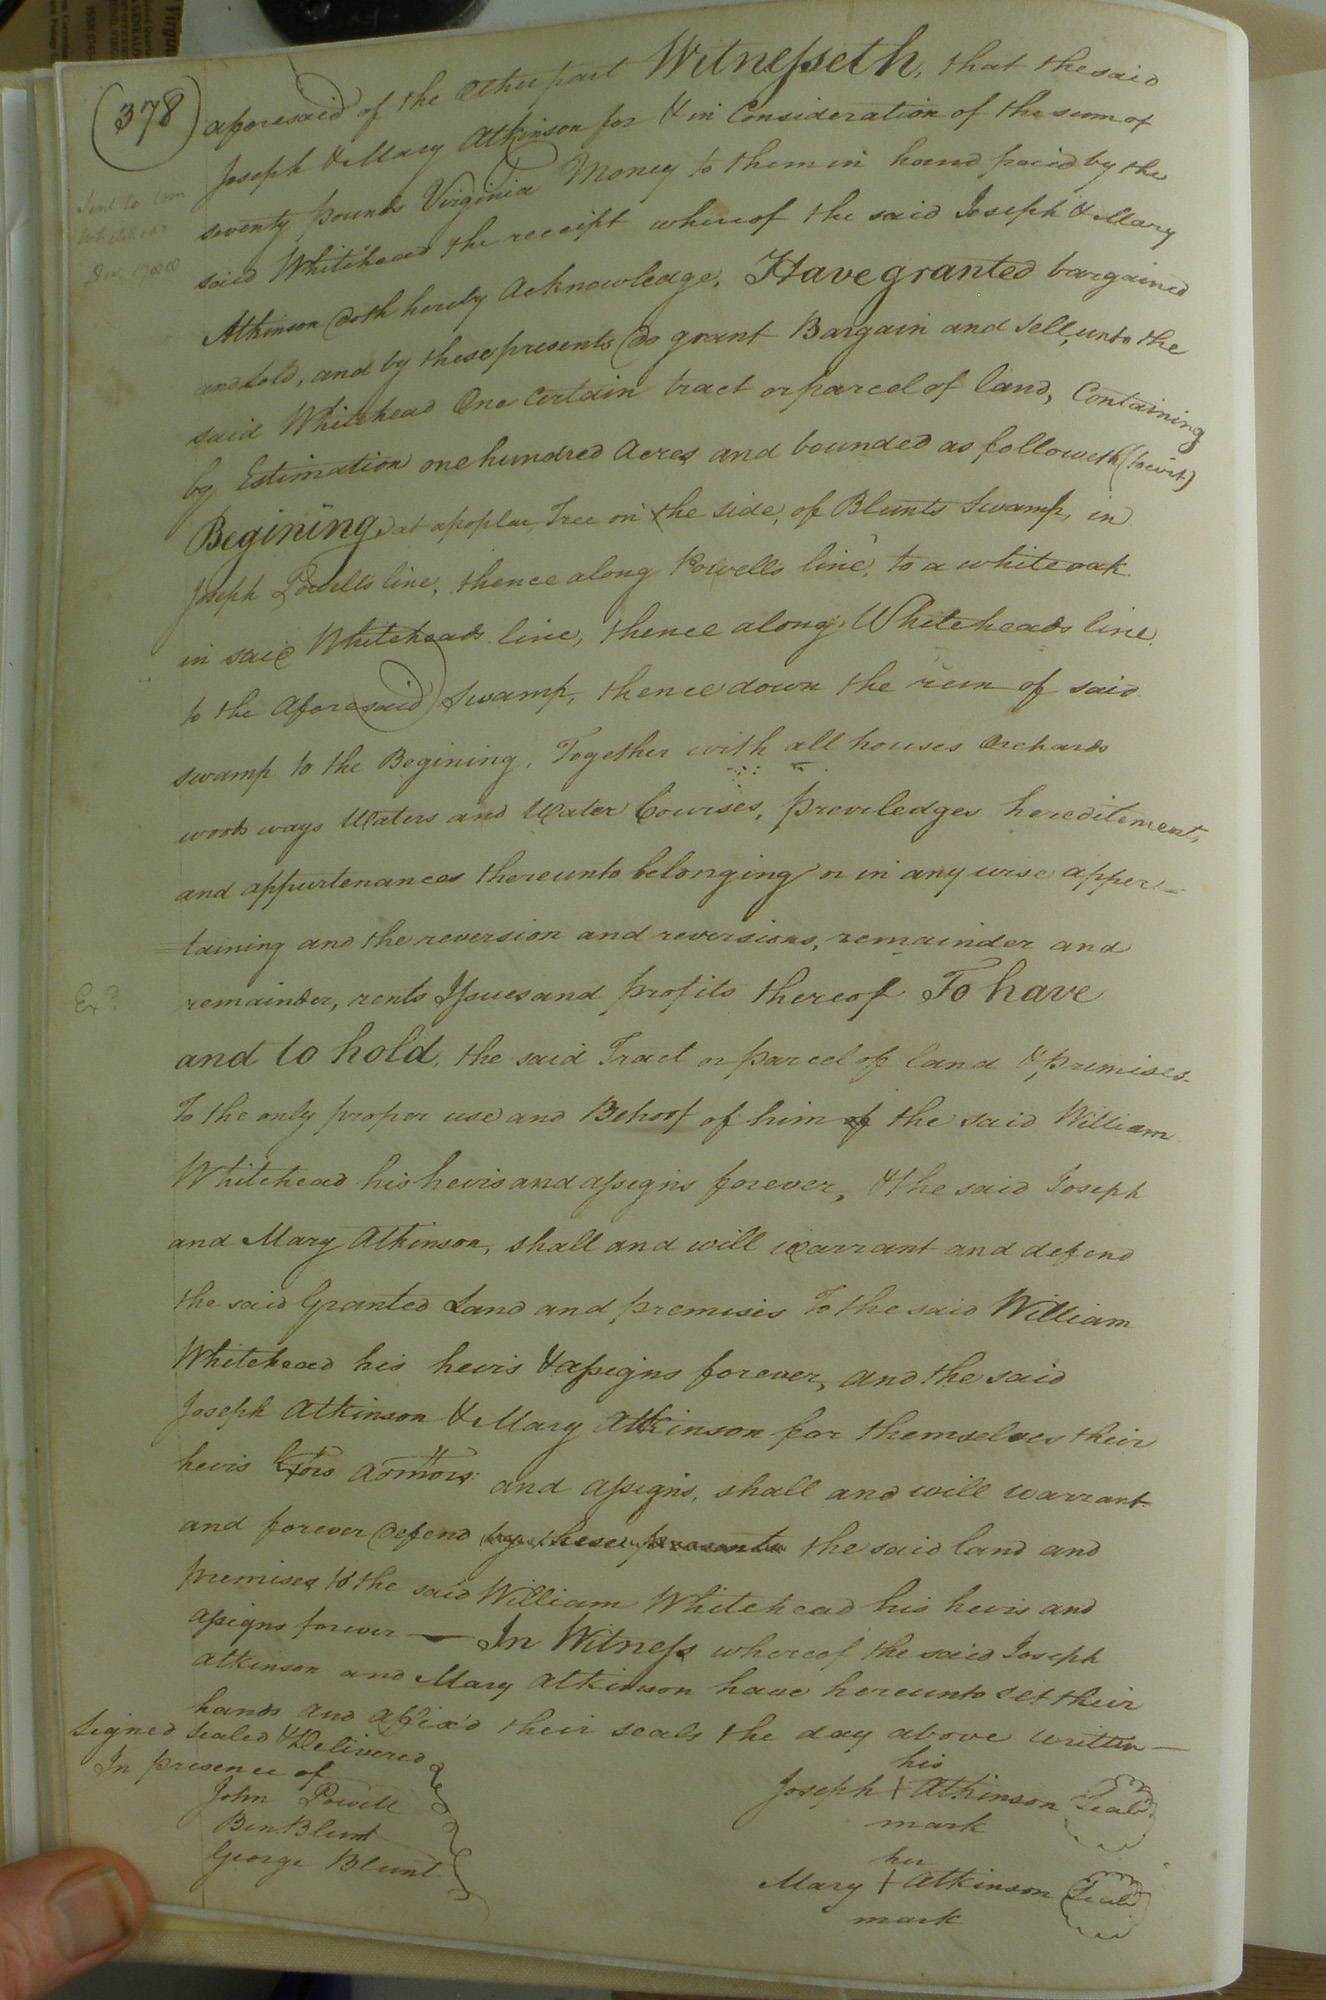 (378)
aforesaid of the Other part Witnesseth, that the said
Joseph & Mary Atkinson for & in Consideration of the sum of
seventy pounds Virginia Money to them in hand paid by the
said Whitehead the receipt whereof the said Joseph & Mary
Atkinson doth hereby Acknowledge, Have granted bargained
and sold, and by these presents do grant Bargain and Sell, unto the
said Whitehead One Certain tract or parcel of land, Containing
by Estimation one hundred Acres and bounded as followeth (towit)
Begining at a poplar Tree on the side, of Blunts Swamp, in
Joseph Powells line, thence along Powells line, to a white oak
in said Whiteheads line, thence along Whiteheads line
to the Aforesaid Swamp, thence down the run of said
swamp to the Begining, Together with all houses Orchards
woods ways Waters and Water Courses, previledges hereditements
and appurtenances thereunto belonging or in any wise apper=
=taining and the reversion and reversions, remainder and
remainder, rents Issues and profits thereof To have
and to hold, the said Tract or parcel of land & premises
To the only proper use and Behoof of him of the said William
Whitehead his heirs and assigns forever, & the said Joseph
and Mary Atkinson, shall and will warrant and defend
the said Granted Land and premises To the said William
Whitehead his heirs & assigns forever, and the said
Joseph Atkinson & Mary Atkinson for themselves their
heirs Exors Admors and assigns, shall and will warrant
and forever defend by these presents the said land and
premises to the said William Whitehead his heirs and
assigns forever — In Witness whereof the said Joseph
Atkinson and Mary Atkinson have hereunto set their
hands and affix'd their seals the day above written —
Signed Sealed & Delivered
In presence of
John Powell
Ben Blunt
George Blunt
his
Joseph + Atkinson Seal
mark
her
Mary + Atkinson Seal
mark
Sent to Wm
Whitehead
1788
Exd
Virgin